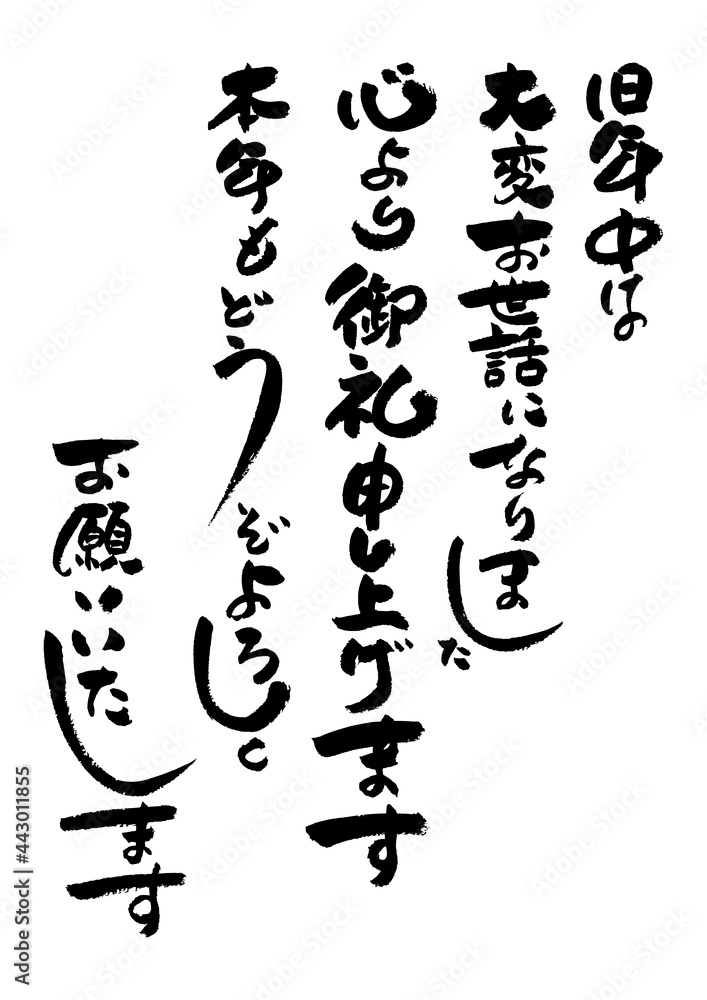 旧年中は
大変お世話になりました
心より御礼申し上げます
本年もどうぞよろしく
お願いいたします
Adobe Stock | #443011855